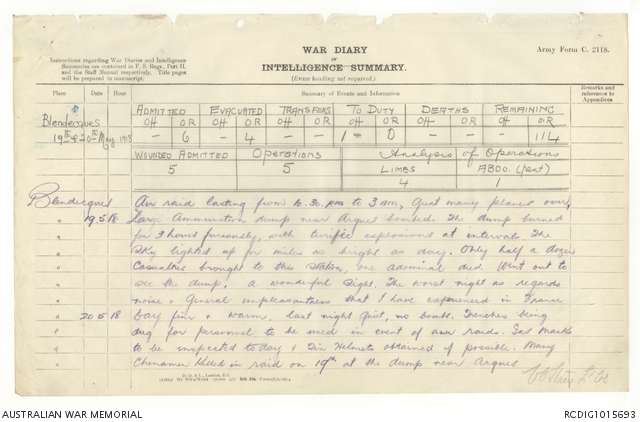 WAR DIARY
or
INTELLIGENCE SUMMARY.
(Erase heading not required.)
Army Form C. 2118.
Instructions regarding War Diaries and Intelligence
Summaries are contained in F. S. Regs., Part II.
and the Staff Manual respectively. Title pages
will be prepared in manuscript.
Place Date Hour Summary of Events and Information Remarks and references to Appendices
Blendecques
19th & 20th May 1918
ADMITTED EVACUATED TRANSFERS TO DUTY DEATHS REMAINING
OFF OR OFF OR OFF OR OFF OR OFF OR OFF OR
- 6 - 4 - - 1 0 - - - 114
WOUNDED ADMITTED OPERATIONS Analysis of Operations
5 5 LIMBS ABDO.
4 1
Blendecques Air raid lasting from 10.30 pm to 3 am, Great many planes over,
" 19.5.18 Large Ammunition dump near Arques bombed. The dump burned
" for 3 hours furiously, with terrific explosions at intervals. The
" Sky lighted up for miles as bright as day. Only half a dozen
" Casualties brought to this station, one admitted died. Went out to
" see the dump. A wonderful sight. The worst night as regards
" noise & General unpleasantness that I have experienced in France
" 20.5.18 Day fine & warm, last night quiet, no bombs. Trenches being
" dug for personnel to be used in event of air raids. Gas Masks
" to be inspected today & Tin Helmets obtained if possible. Many
" Chinamen killed in raid on 19th at the dump near Arques
AUSTRALIAN WAR MEMORIAL
RCDIG1015693